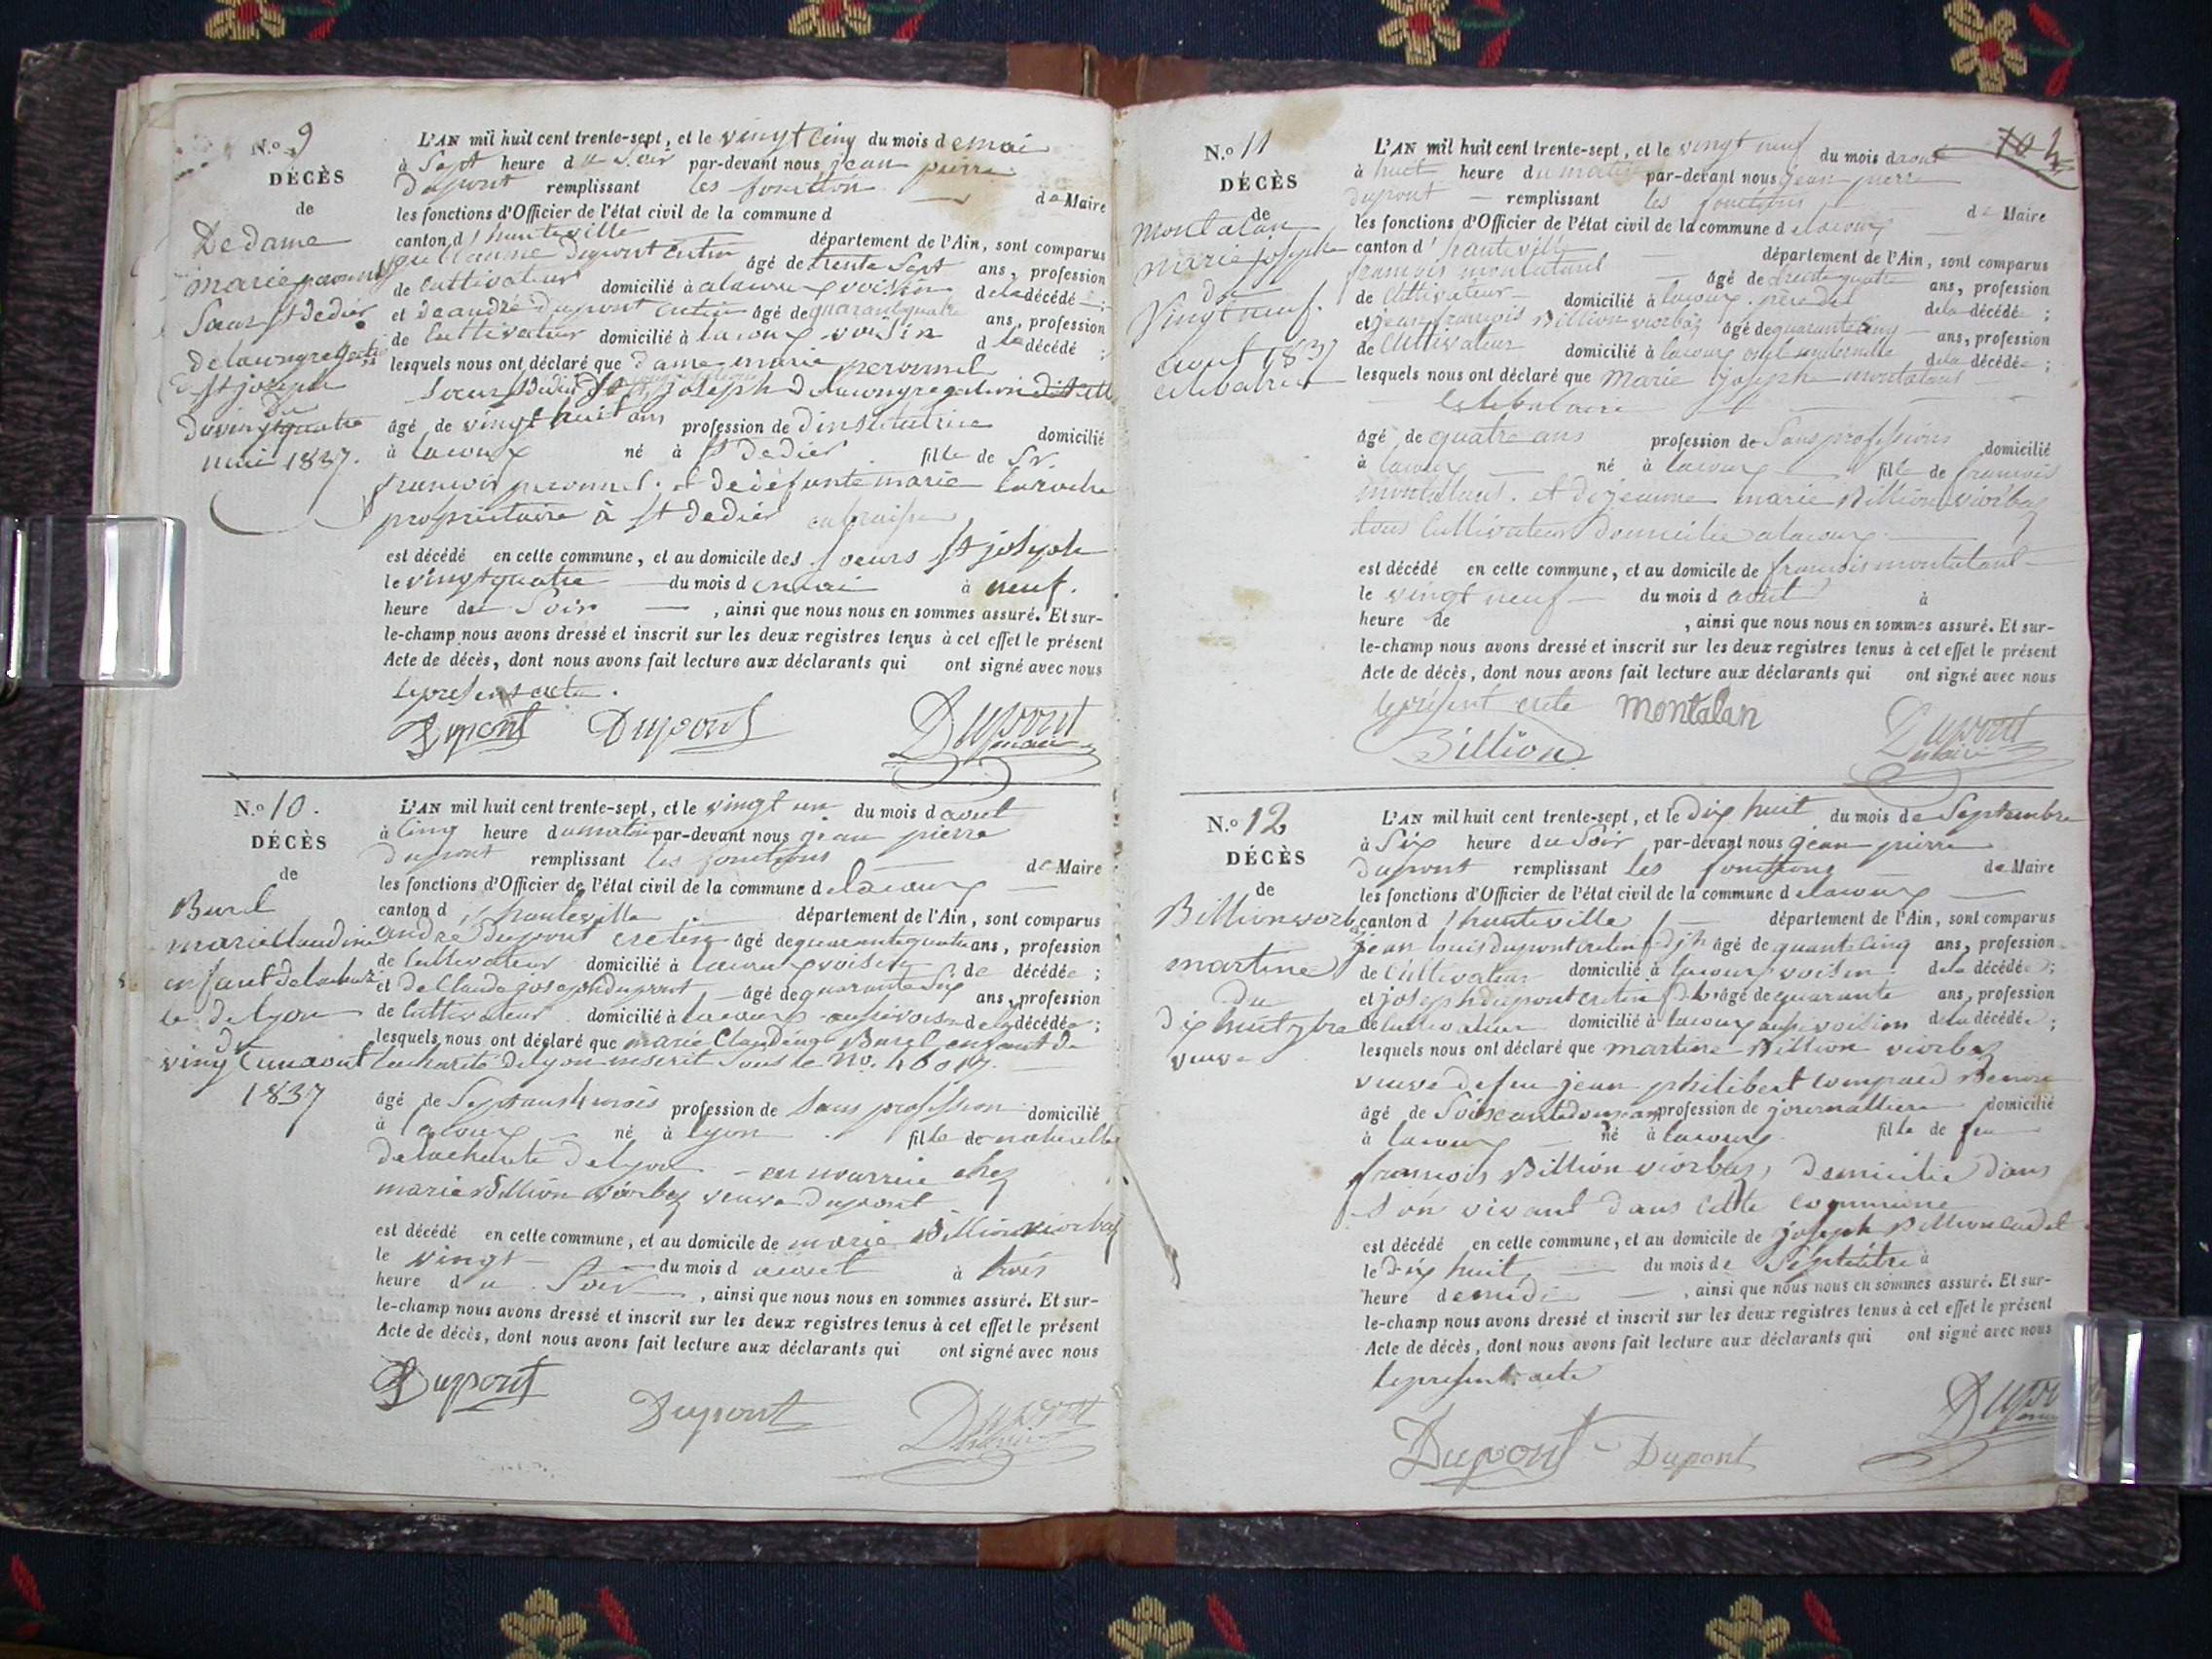 N.o 9
DÉCÈS
de
De dame
marie peronnet
Sœur St Dedier
de la congregation
St joseph
du
du vingt quatre
mai 1837.
L'AN mil huit cent trente-sept, et le vingt cinq du mois de mai
à Sept heure du Soir par-devant nous jean pierre
dupont remplissant les fonction de Maire
les fonctions d'Officier de l'état civil de la commune d
canton d'hauteville département de l'Ain, sont comparus
guillaume Dupont cretin âgé de trente Sept ans, profession
de Cultivateur domicilié à alacoux voisin de la décédé ;
et de andré dupont cretin âgé de quarante quatre ans, profession
de Cultivateur domicilié à lacoux voisin d la décédé ;
lesquels nous ont déclaré que dame marie peronnet
Sœur St Dedier joseph De la congregation
âgé de vingt huit ans profession de D'institutrice domicilié
à lacoux né à St Dedier fille de Sr.
francois peronnet. et de défunte marie laroche
propriétaire à St Dedier
est décédé en cette commune, et au domicile des Sœurs St joseph
le vingt quatre du mois de mai à neuf.
heure du Soir , ainsi que nous nous en sommes assuré. Et sur-
le-champ nous avons dressé et inscrit sur les deux registres tenus à cet effet le présent
Acte de décès, dont nous avons fait lecture aux déclarants qui ont signé avec nous
le present acte.
Dupont Dupont Dupont
maire
N.o 10.
DÉCÈS
de
Burel
marie Claudine
enfant de la charité
de Lyon
du
vingt un aout
1837
L'AN mil huit cent trente-sept, et le vingt un du mois d aout
à Cinq heure du matin par-devant nous jean pierre
dupont remplissant les fonctions de Maire
les fonctions d'Officier de l'état civil de la commune de lacoux
canton d'hauteville département de l'Ain, sont comparus
andré Dupont cretin âgé de quarante quatre ans, profession
de Cultivateur domicilié à lacoux voisin de décédée ;
et de Claude joseph dupont âgé de quarante Six ans, profession
de Cultivateur domicilié à lacoux aussi voisin de la décédée ;
lesquels nous ont déclaré que marie Claudine Burel enfant de
la charité de lyon inscrit Sous le No.
âgé de Sept ans 4 mois profession de Sans profession domicilié
à lacoux né à lyon fille de naturelle
de la charité de lyon en nourrice chez
marie Billion viorbaz veuve dupont
est décédé en cette commune, et au domicile de marie Billion viorbaz
le vingt du mois d aout à trois
heure du Soir , ainsi que nous nous en sommes assuré. Et sur-
le-champ nous avons dressé et inscrit sur les deux registres tenus à cet effet le présent
Acte de décès, dont nous avons fait lecture aux déclarants qui ont signé avec nous
Dupont Dupont Dupont
N.o 11
DÉCÈS
de
montalan
marie joseph
du
Vingt neuf.
aout 1837
celibataire
L'AN mil huit cent trente-sept, et le vingt neuf du mois d aout
à huit heure du matin par-devant nous jean pierre
dupont remplissant les fonctions de Maire
les fonctions d'Officier de l'état civil de la commune de lacoux
canton d'hauteville département de l'Ain, sont comparus
francois montalant âgé de trente quatre ans, profession
de Cultivateur domicilié à lacoux père de la décédée ;
et jean francois Billion viorbaz âgé de quarante cinq ans, profession
de Cultivateur domicilié à lacoux de la décédée ;
lesquels nous ont déclaré que Marie joseph montalant
Celibataire
âgé de quatre ans profession de Sans professions domicilié
à lacoux né à lacoux fille de francois
montalant. et de jeanne marie Billion viorbaz
tous Cultivateur Domicilié a lacoux
est décédé en cette commune, et au domicile de francois montalant
le vingt neuf du mois d aout à
heure de , ainsi que nous nous en sommes assuré. Et sur-
le-champ nous avons dressé et inscrit sur les deux registres tenus à cet effet le présent
Acte de décès, dont nous avons fait lecture aux déclarants qui ont signé avec nous
le présent acte montalan
Billion Dupont
maire
N.o 12
DÉCÈS
de
Billion viorbaz
martine
du
dix huit 7bre
veuve
L'AN mil huit cent trente-sept, et le dix huit du mois de Septembre
à Six heure du Soir par-devant nous jean pierre
dupont remplissant les fonctions de Maire
les fonctions d'Officier de l'état civil de la commune de lacoux
canton d'hauteville département de l'Ain, sont comparus
jean louis dupont cretin âgé de quarante cinq ans, profession
de Cultivateur domicilié à lacoux voisin de la décédée ;
et joseph dupont cretin âgé de quarante ans, profession
de Cultivateur domicilié à lacoux aussi voision de la décédée ;
lesquels nous ont déclaré que martine Billion viorbaz
veuve de feu jean philibert
âgé de Soixante douze ans profession de journalliere domicilié
à lacoux né à lacoux fille de feu
francois Billion viorbaz, Domicilié dans
Son vivant dans cette commune
est décédé en cette commune, et au domicile de joseph Billion cadet
le dix huit du mois de Septembre à
heure de midi , ainsi que nous nous en sommes assuré. Et sur-
le-champ nous avons dressé et inscrit sur les deux registres tenus à cet effet le présent
Acte de décès, dont nous avons fait lecture aux déclarants qui ont signé avec nous
le present acte
Dupont Dupont